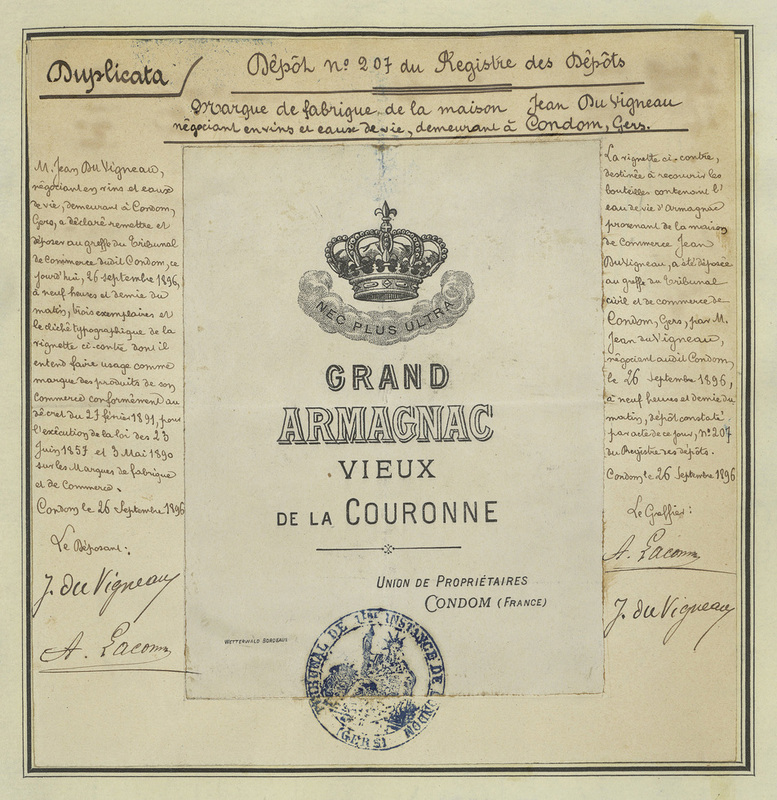 Duplicata
Dépôt nº 207 du Registre des Dépôts
Marque de fabrique de la maison Jean Du Vigneau
négociant en vins et eaux de vie, demeurant à Condom, Gers.
M. Jean Du Vigneau,
négociant en vins et eaux
de vie, demeurant à Condom,
Gers, a déclaré remettre et
déposer au greffe du Tribunal
de Commerce dudit Condom, ce
jourd'hui, 26 septembre 1896,
à neuf heures et demie du
matin, trois exemplaires et
le cliché typographique de la
vignette ci-contre dont il
entend faire usage comme
marque des produits de son
commerce conformément au
décret du 27 février 1891, pour
l'exécution de la loi des 23
Juin 1857 et 3 Mai 1890
sur les Marques de fabrique
et de Commerce.
Condom le 26 Septembre 1896
Le Déposant:
J. du Vigneau
A. Lacomme
NEC PLUS ULTRA
GRAND
ARMAGNAC
VIEUX
DE LA COURONNE
UNION DE PROPRIÉTAIRES
CONDOM (FRANCE)
WETTERWALD BORDEAUX
TRIBUNAL DE 1RE INSTANCE DE CONDOM
(GERS)
La vignette ci-contre,
destinée à recouvrir les
bouteilles contenant l'
eau de vie d'Armagnac
provenant de la maison
de commerce Jean
Du Vigneau, a été déposée
au greffe du Tribunal
civil et de commerce de
Condom, Gers, par M.
Jean du Vigneau,
négociant audit Condom,
le 26 Septembre 1896,
à neuf heures et demie du
matin, dépôt constaté
par acte de ce jour, nº 207
du Registre des dépôts.
Condom le 26 Septembre 1896
Le Greffier:
A. Lacomme
J. du Vigneau